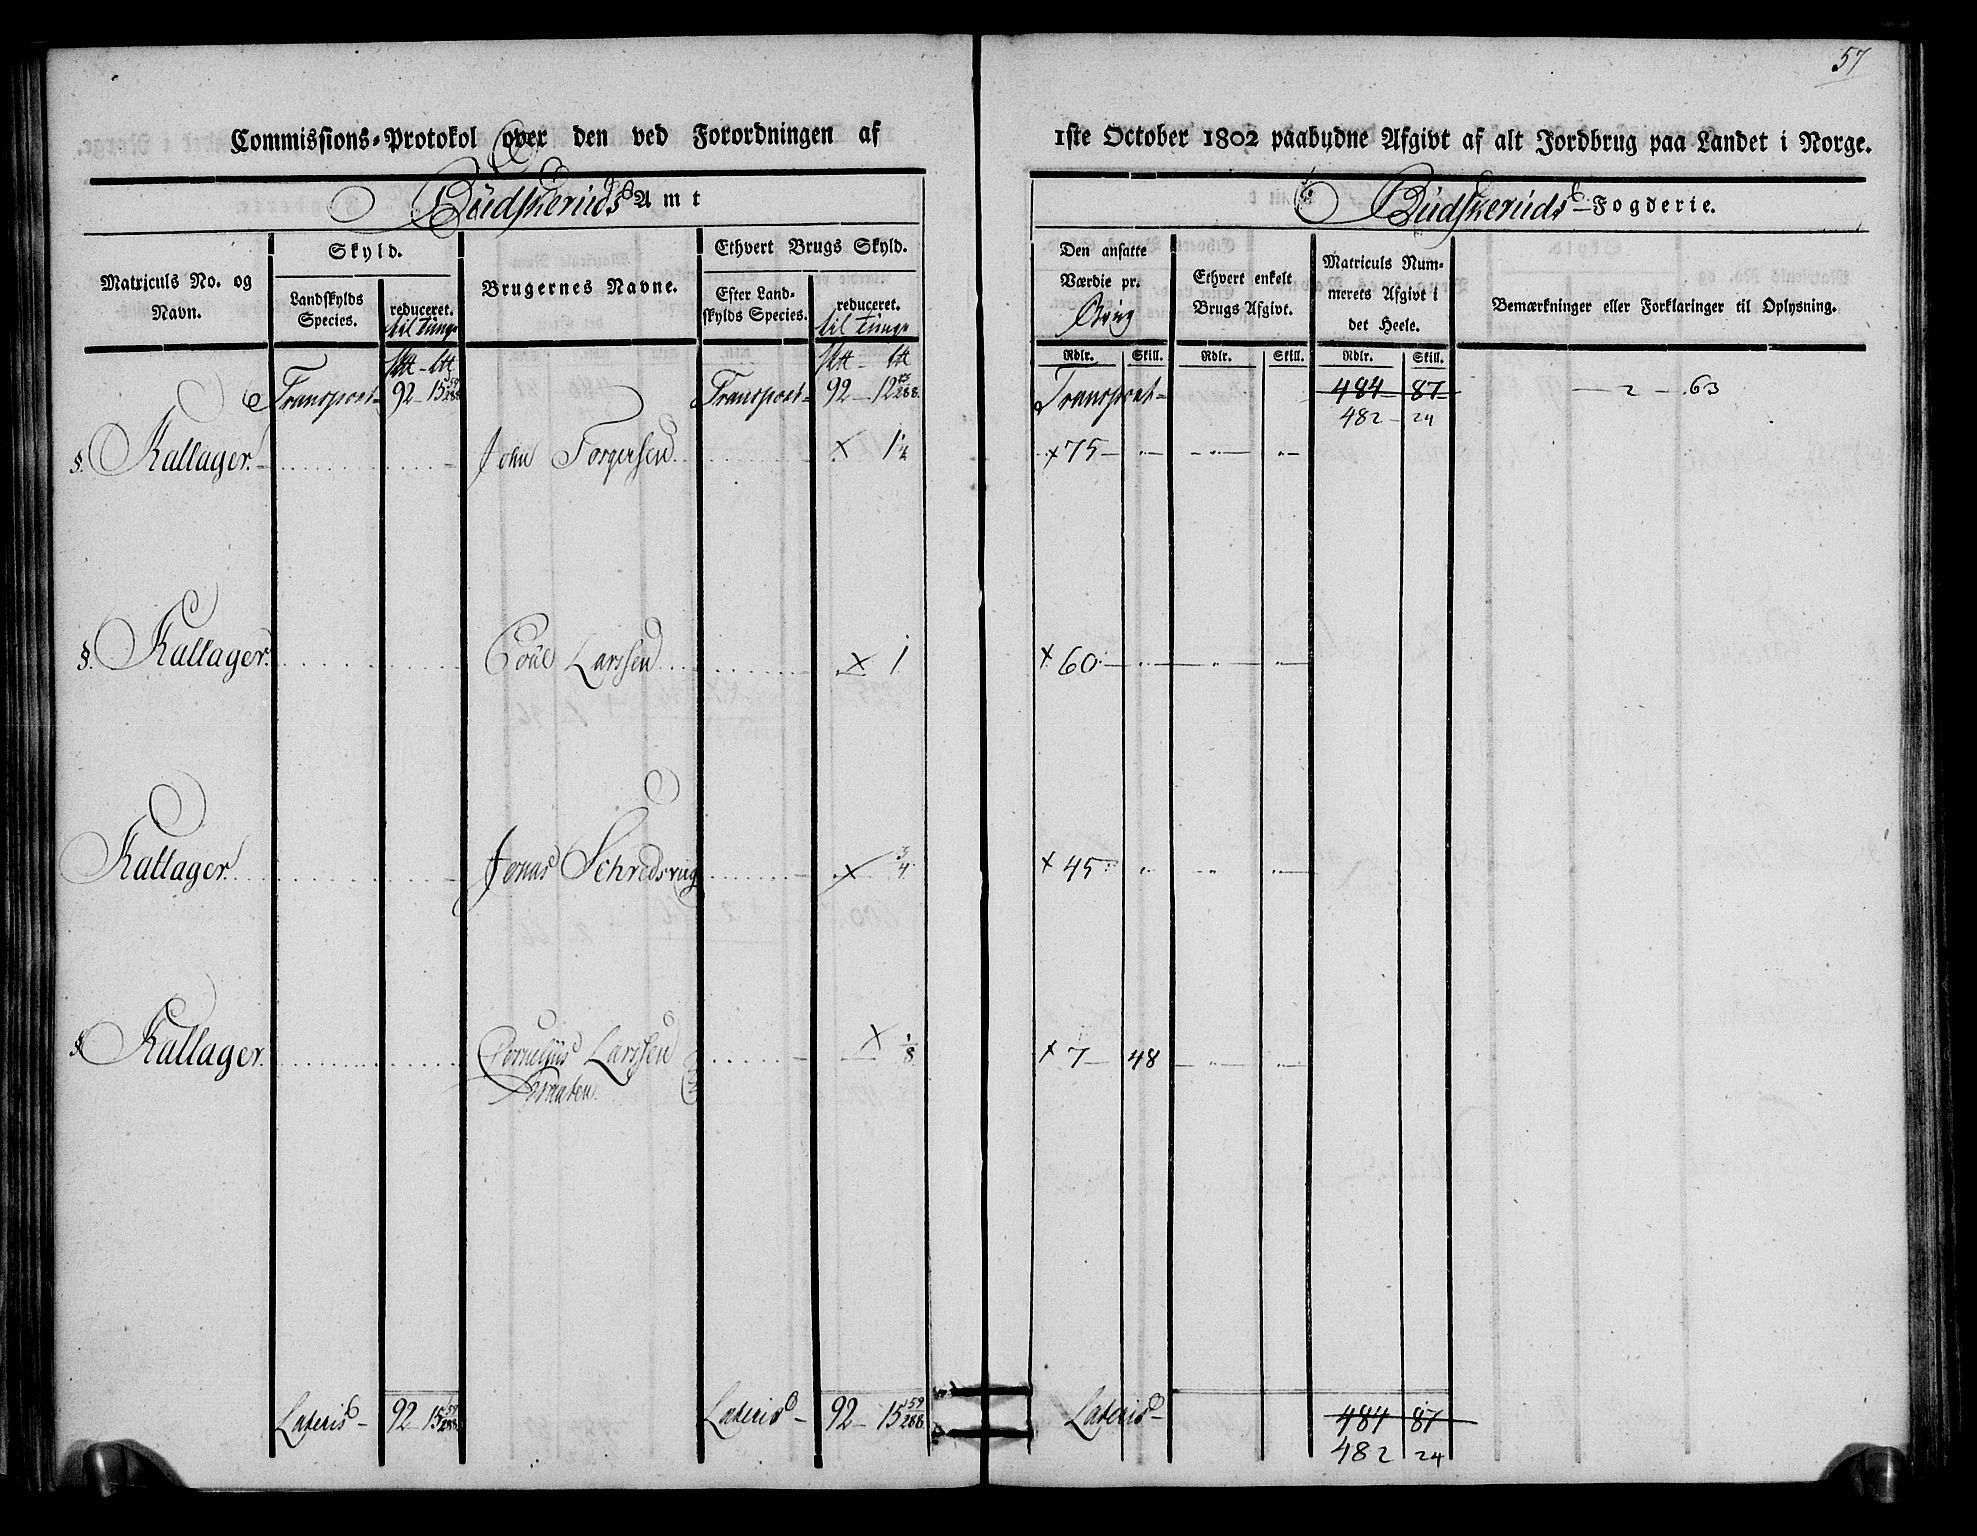 57
Commissions-Protokol over den ved Forordningen af 1ste October 1802 paabudne Afgivt af alt Jordbrug paa Landet i Norge.
Budskeruds Amt
Budskeruds Fogderie.
Matriculs No. og Navn.
Skyld.
Landskylds Species.
reduceret.
til Tunge
Brugernes Navne.
Ethvert Brugs Skyld.
Efter Landskylds Species.
reduceret.
til Tunge
Den ansatte Værdie pr.
Ethvert enkelt Brugs Afgivt.
Matriculs Nummerets Afgivt i det Heele.
Bemærkninger eller Forklaringer til Oplysning.
Rdlr. Skill. Rdlr. Skill. Rdlr. Skill.
Transport 92 15 59/288 Transport 92 12 /288 Transport 484 87 2 63
482 24
§. Kallager John Torgersen × 1½ × 75
§. Kallager Poul Larssen × 1 × 60
Kallager Jonas Schredsvig × ¾ × 45
§ Kallager Cornelius Larssen × 1/8 × 7 48
Braaten
Lateris 92 15 59/288 Lateris 92 15 59/288 Lateris 484 87
482 24